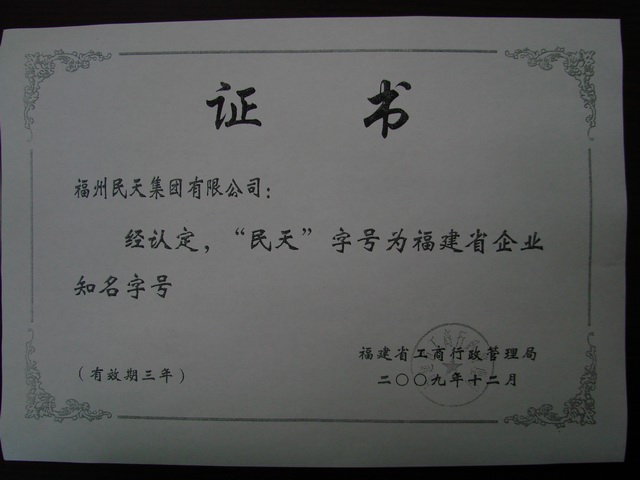 证 书
福州民天集团有限公司：
经认定，“民天”字号为福建省企业
知名字号
福建省工商行政管理局
（有效期三年）
二〇〇九年十二月